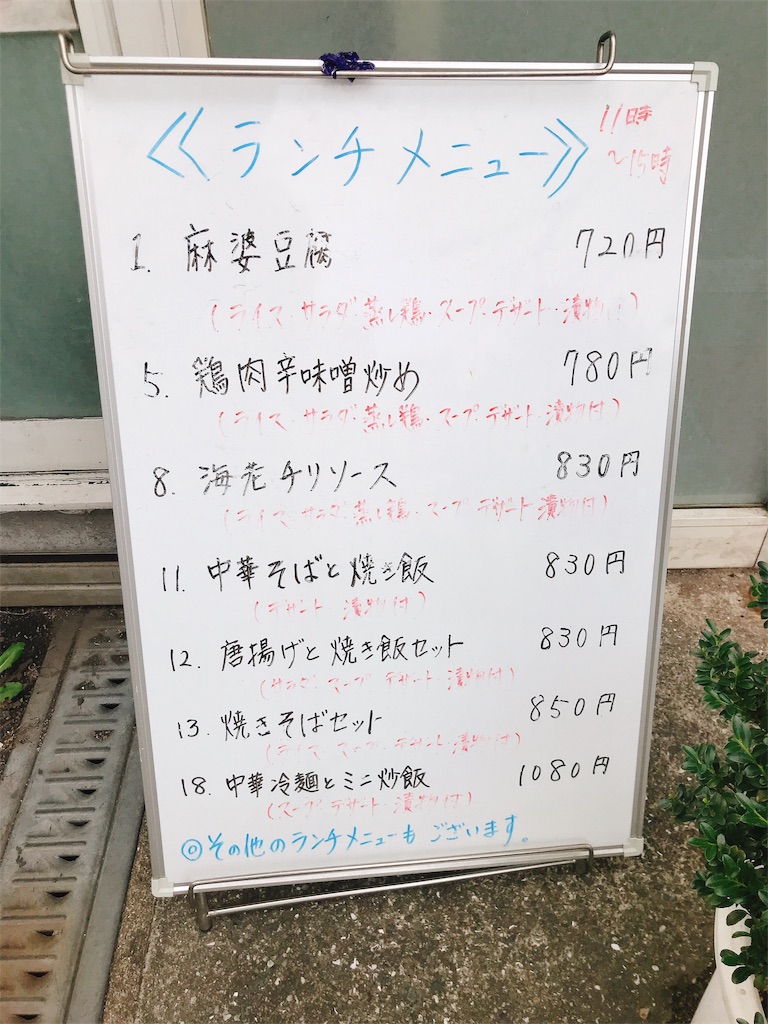 ≪ランチメニュー≫ 11時
～15時
1. 麻婆豆腐 720円
(ライス・サラダ・蒸し鶏・スープ・デザート・漬物付)
5. 鶏肉辛味噌炒め 780円
(ライス・サラダ・蒸し鶏・スープ・デザート・漬物付)
8. 海老チリソース 830円
(ライス・サラダ・蒸し鶏・スープ・デザート・漬物付)
11. 中華そばと焼き飯 830円
(デザート・漬物付)
12. 唐揚げと焼き飯セット 830円
(サラダ・スープ・デザート・漬物付)
13. 焼きそばセット 850円
(ライス・スープ・デザート・漬物付)
18. 中華冷麺とミニ炒飯 1080円
(スープ・デザート・漬物付)
◎その他のランチメニューもございます。